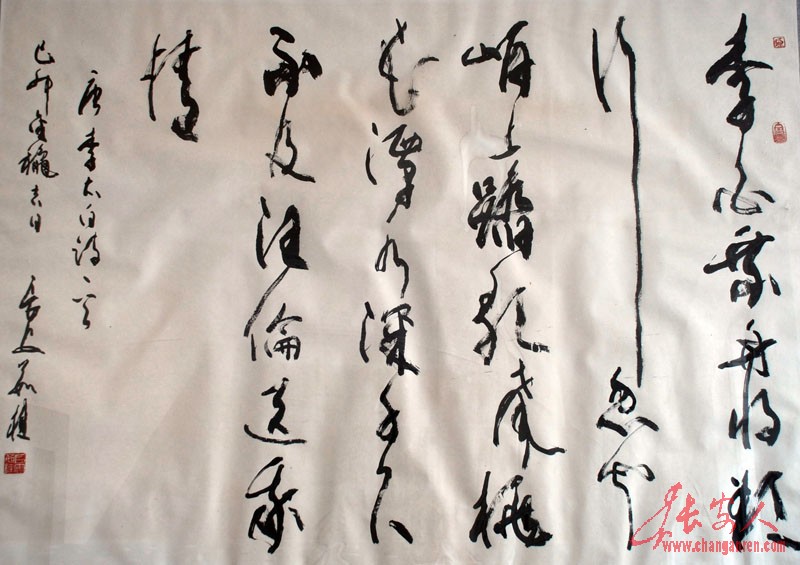 李白乘舟将欲
行忽闻
岸上踏歌声桃
花潭水深千尺
不及汪倫送我
情
唐李太白诗一首
己卯金穐吉日
长安茹桂
长安人
www.changanren.com